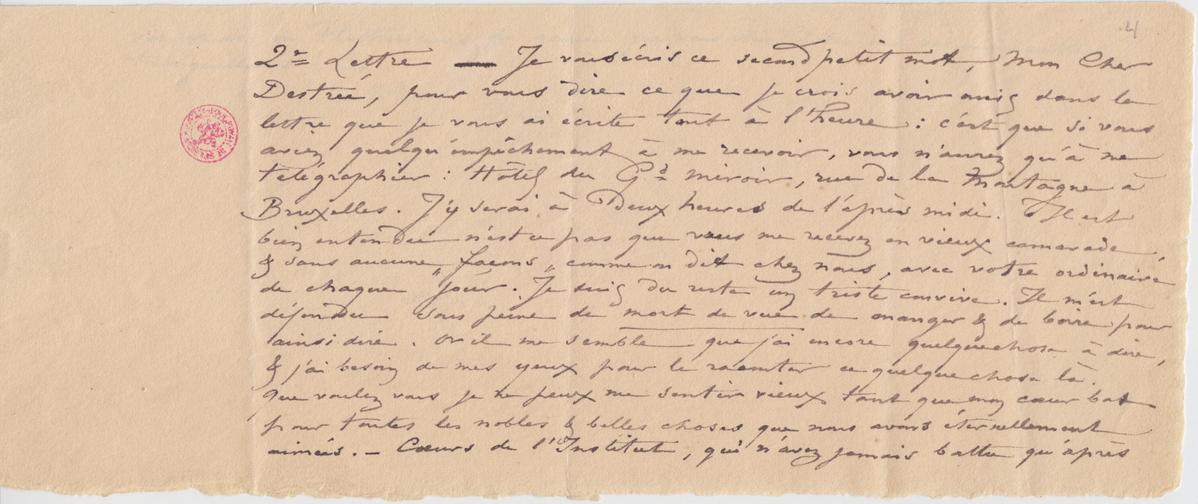 4
2me Lettre — Je vous écris ce second petit mot, Mon Cher
Destrée, pour vous dire ce que je crois avoir omis dans la
lettre que je vous ai écrite tout à l'heure : c'est que si vous
aviez quelqu'empêchement à me recevoir, vous n'aurez qu'à me
télégraphier : Hôtel du Gd miroir, rue de la Montagne à
Bruxelles. J'y serai à Deux heures de l'après midi. Il est
bien entendu n'est ce pas que vous me recevez en vieux camarade
& sans aucune "façons" comme on dit chez nous, avec votre ordinaire
de chaque jour. Je suis du reste un triste convive. Il m'est
défendu sous peine de mort de vue de manger & de boire pour
ainsi dire. Or il me semble que j'ai encore quelque chose à dire,
& j'ai besoin de mes yeux pour le raconter ce quelque chose là.
que voulez vous je ne peux me sentir vieux tant que mon cœur bat
pour toutes les nobles & belles choses que nous avons éternellement
aimées. — Cœurs de l'Institut, qui n'avez jamais battu qu'après